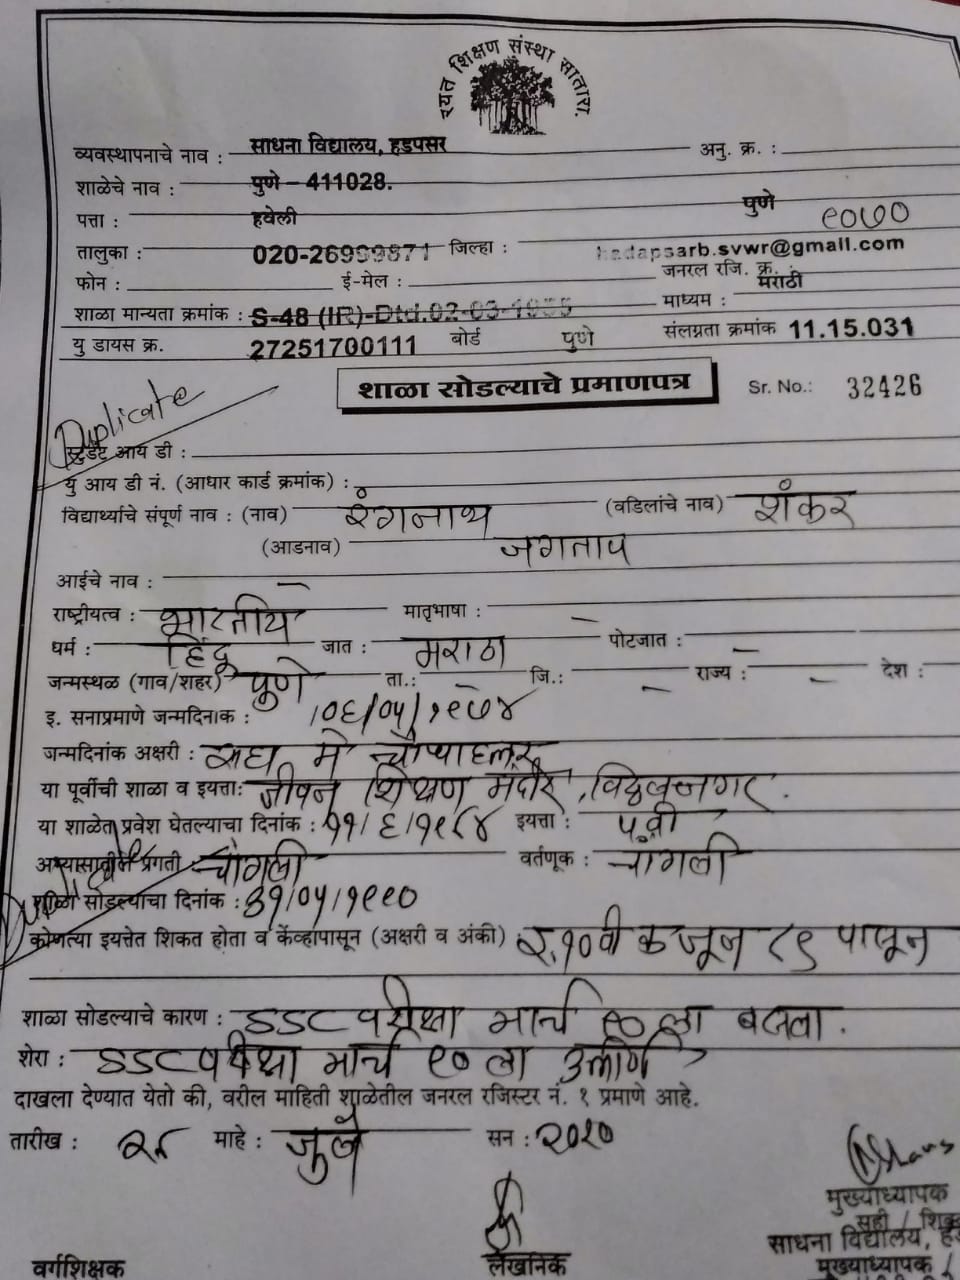 रयत शिक्षण संस्था सातारा.
व्यवस्थापनाचे नाव : साधना विद्यालय, हडपसर अनु. क्र. :
शाळेचे नाव : पुणे - 411028.
पत्ता : हवेली पुणे ९०७०
तालुका : 020-26999871 जिल्हा : hadapsarb.svwr@gmail.com
फोन : ई-मेल : जनरल रजि. क्र.
शाळा मान्यता क्रमांक : S-48 (IR)-Dtd.02-03-1955 माध्यम : मराठी
यु डायस क्र. 27251700111 बोर्ड पुणे संलग्नता क्रमांक 11.15.031
शाळा सोडल्याचे प्रमाणपत्र Sr. No.: 32426
Duplicate
स्टुडंट आय डी :
यु आय डी नं. (आधार कार्ड क्रमांक) :
विद्यार्थ्याचे संपूर्ण नाव : (नाव) रंगनाथ (वडिलांचे नाव) शंकर
(आडनाव) जगताप
आईचे नाव : —
राष्ट्रीयत्व : भारतीय मातृभाषा : —
धर्म : हिंदू जात : मराठा पोटजात : —
जन्मस्थळ (गाव/शहर) पुणे ता.: — जि.: — राज्य : — देश :
इ. सनाप्रमाणे जन्मदिनांक : ०६/०५/१९७४
जन्मदिनांक अक्षरी : सहा मे चौऱ्याहत्तर
या पूर्वीची शाळा व इयत्ता: जीवन शिक्षण मंदीर, विठ्ठलनगर.
या शाळेत प्रवेश घेतल्याचा दिनांक : ११/६/१९८४ इयत्ता : ५ वी
अभ्यासातील प्रगती चांगली वर्तणूक : चांगली
शाळा सोडल्याचा दिनांक : ३१/०५/१९९०
कोणत्या इयत्तेत शिकत होता व केंव्हापासून (अक्षरी व अंकी) : इ.१०वी क जून ८९ पासून
शाळा सोडल्याचे कारण : SSC परीक्षा मार्च ९० ला बसला.
शेरा : SSC परीक्षा मार्च ९० ला उत्तीर्ण
दाखला देण्यात येतो की, वरील माहिती शाळेतील जनरल रजिस्टर नं. १ प्रमाणे आहे.
तारीख : २८ माहे : जुलै सन : २०२०
मुख्याध्यापक
सही / शिक्का
साधना विद्यालय,
वर्गशिक्षक लेखनिक मुख्याध्यापक